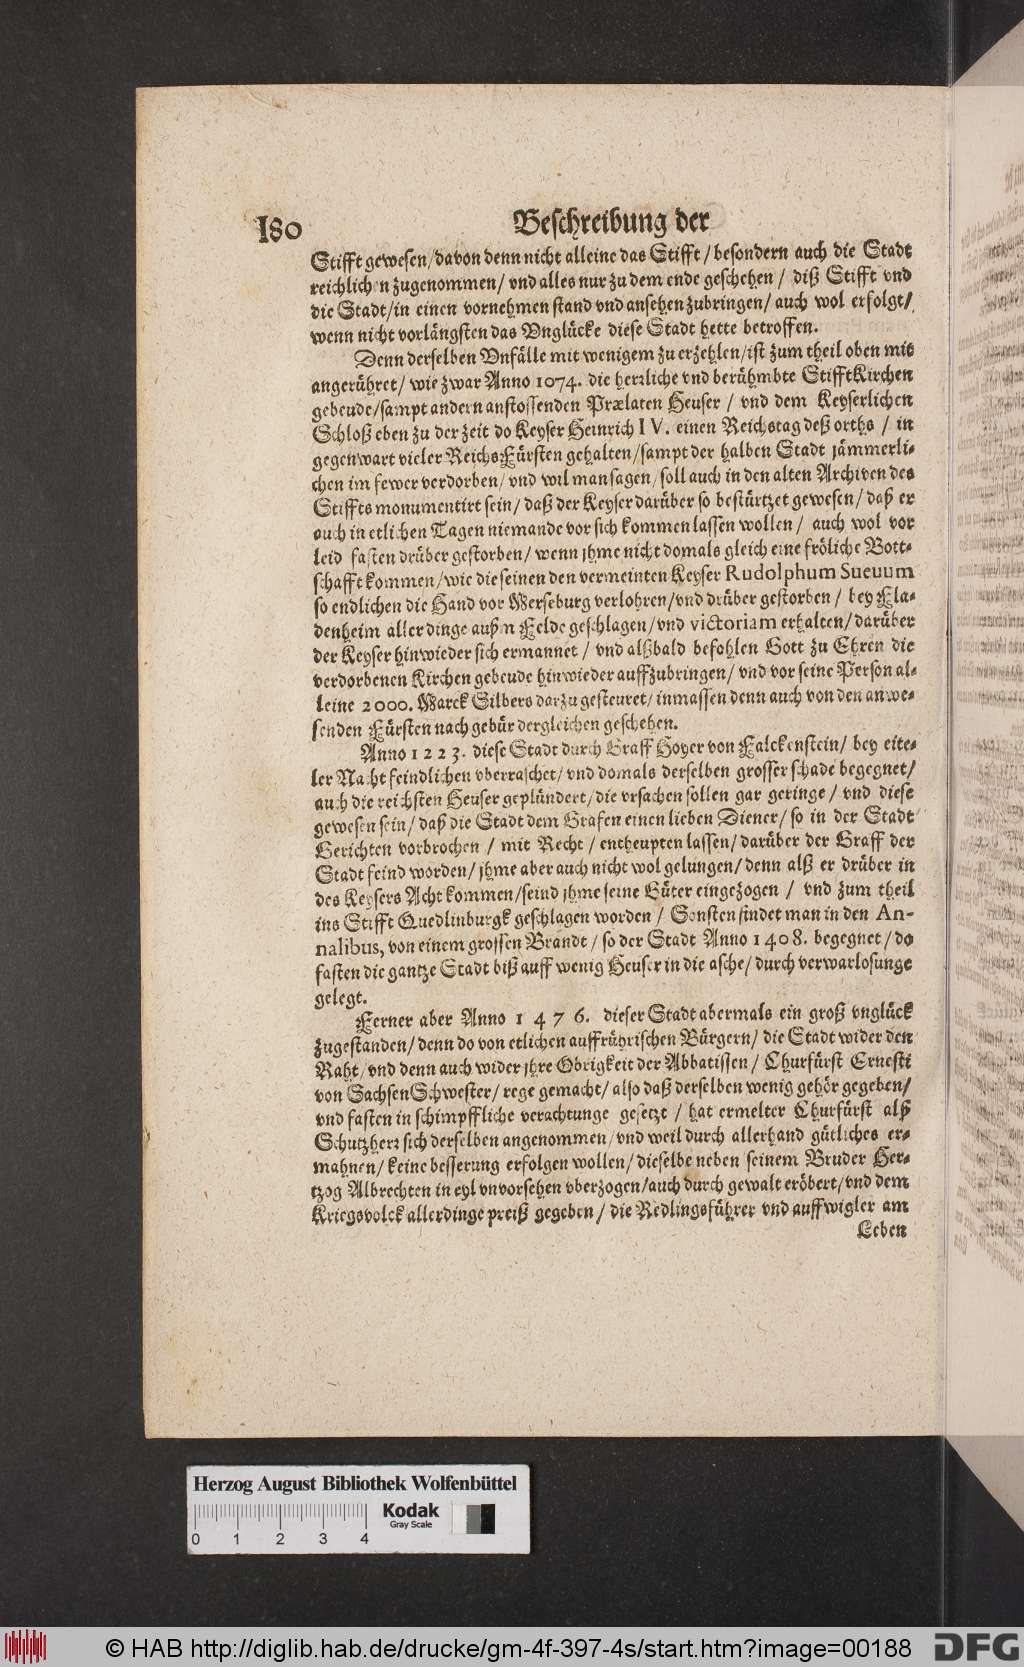 180
Beschreibung der
Stifft gewesen/davon denn nicht alleine das Stifft/besondern auch die Stadt
reichlichen zugenommen/vnd alles nur zu dem ende geschehen/ diß Stifft vnd
die Stadt/in einen vornehmen stand vnd ansehen zubringen/ auch wol erfolgt/
wenn nicht vorlängsten das Vnglücke diese Stadt hette betroffen.
Denn derselben Vnfälle mit wenigem zu erzehlen/ist zum theil oben mit
angerühret/ wie zwar Anno 1074. die herrliche vnd berühmbte StifftKirchen
gebeude/sampt andern anstossenden Prælaten Heuser / vnd dem Keyserlichen
Schloß eben zu der zeit do Keyser Heinrich IV. einen Reichstag deß orths / in
gegenwart vieler ReichsFürsten gehalten/sampt der halben Stadt jämmerli-
chen im fewer verdorben/ vnd wil man sagen/ soll auch in den alten Archiven des
Stiffts monumentirt sein/ daß der Keyser darüber so bestürtzet gewesen/ daß er
auch in etlichen Tagen niemande vor sich kommen lassen wollen/ auch wol vor
leid fasten drüber gestorben/ wenn jhme nicht domals gleich eine fröliche Bott-
schafft kommen/ wie die seinen den vermeinten Keyser Rudolphum Suevum
so endlichen die Hand vor Merseburg verlohren/vnd drüber gestorben/ bey Fla-
denheim aller dinge außm Felde geschlagen/ vnd victoriam erhalten/ darüber
der Keyser hinwieder sich ermannet / vnd alßbald befohlen Gott zu Ehren die
verdorbenen Kirchen gebeude hinwieder auffzubringen/ vnd vor seine Person al-
leine 2000. Marck Silbers darzu gesteuret/ inmassen denn auch von den anwe-
senden Fürsten nach gebür dergleichen geschehen.
Anno 1223. diese Stadt durch Graff Hoyer von Falckenstein/ bey eite-
ler Nacht feindlichen vberraschet/ vnd domals derselben grosser schade begegnet/
auch die reichsten Heuser geplündert/ die vrsachen sollen gar geringe / vnd diese
gewesen sein/ daß die Stadt dem Grafen einen lieben Diener/ so in der Stadt
Gerichten vorbrochen / mit Recht / entheupten lassen/ darüber der Graff der
Stadt feind worden/ jhme aber auch nicht wol gelungen/ denn alß er drüber in
des Keysers Acht kommen/seind jhme seine Güter eingezogen / vnd zum theil
ins Stifft Quedlinburgk geschlagen worden / Sonsten findet man in den An-
nalibus, von einem grossen Brandt / so der Stadt Anno 1408. begegnet/ do
fasten die gantze Stadt biß auff wenig Heuser in die asche/ durch verwarlosunge
gelegt.
Ferner aber Anno 1476. dieser Stadt abermals ein groß vnglück
zugestanden/ denn do von etlichen auffrührischen Bürgern/ die Stadt wider den
Raht/ vnd denn auch wider jhre Obrigkeit der Abbatissen/ Churfürst Ernesti
von Sachsen Schwester/ rege gemacht/ also daß derselben wenig gehör gegeben/
vnd fasten in schimpffliche verachtunge gesetzt / hat ermelter Churfürst alß
Schutzherr sich derselben angenommen/ vnd weil durch allerhand gütliches er-
mahnen/ keine besserung erfolgen wollen/ dieselbe neben seinem Bruder Her-
tzog Albrechten in eyl vnvorsehen vberzogen/auch durch gewalt eröbert/ vnd dem
Kriegsvolck allerdinge preiß gegeben / die Redlingsführer vnd auffwigler am
Leben
Herzog August Bibliothek Wolfenbüttel
Kodak
Gray Scale
0 1 2 3 4
© HAB http://diglib.hab.de/drucke/gm-4f-397-4s/start.htm?image=00188
DFG